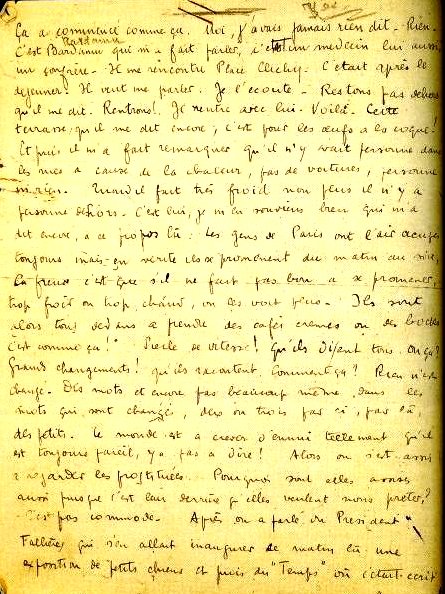 Ça a commencé comme ça. Moi, j'avais jamais rien dit. Rien.
Bardamu
C'est Bardamu qui m'a fait parler, c'était un médecin lui aussi
un confrère. Il me rencontre Place Clichy. C'était après le
déjeuner. Il veut me parler. Je l'écoute. Restons pas dehors
qu'il me dit. Rentrons! Je rentre avec lui. Voilà. Cette
terrasse, qu'il me dit encore, c'est pour les œufs à la coque!
Et puis il m'a fait remarquer qu'il n'y avait personne dans
les rues à cause de la chaleur, pas de voitures, personne
ni rien. Quand il fait très froid non plus il n'y a
personne dehors. C'est lui, je m'en souviens bien qui m'a
dit encore, à ce propos là: Les gens de Paris ont l'air occupés
toujours mais en vérité ils se promènent du matin au soir,
La preuve c'est que s'il ne fait pas bon à se promener,
trop froid ou trop chaud, on les voit plus. Ils sont
alors tous dedans à prendre des cafés crèmes ou des bocks
c'est comme ça!" Siècle de vitesse! Qu'ils disent tous. Où ça?
Grands changements! qu'ils racontent. Comment ça? Rien n'est
changé. Des mots et encore pas beaucoup même, dans les
mots qui sont changés, deux ou trois par ci, par là,
des petits. Le monde est à crever d'ennui tellement qu'il
est toujours pareil, y a pas à dire! Alors on s'est assis
à regarder les prostituées. Pourquoi sont elles assises
aussi puisque c'est leur derrière qu'elles veulent nous prêter?
C'est pas commode. Après on a parlé du Président
Fallières qui s'en allait inaugurer ce matin là, une
exposition de petits chiens et puis du "Temps" où c'était écrit